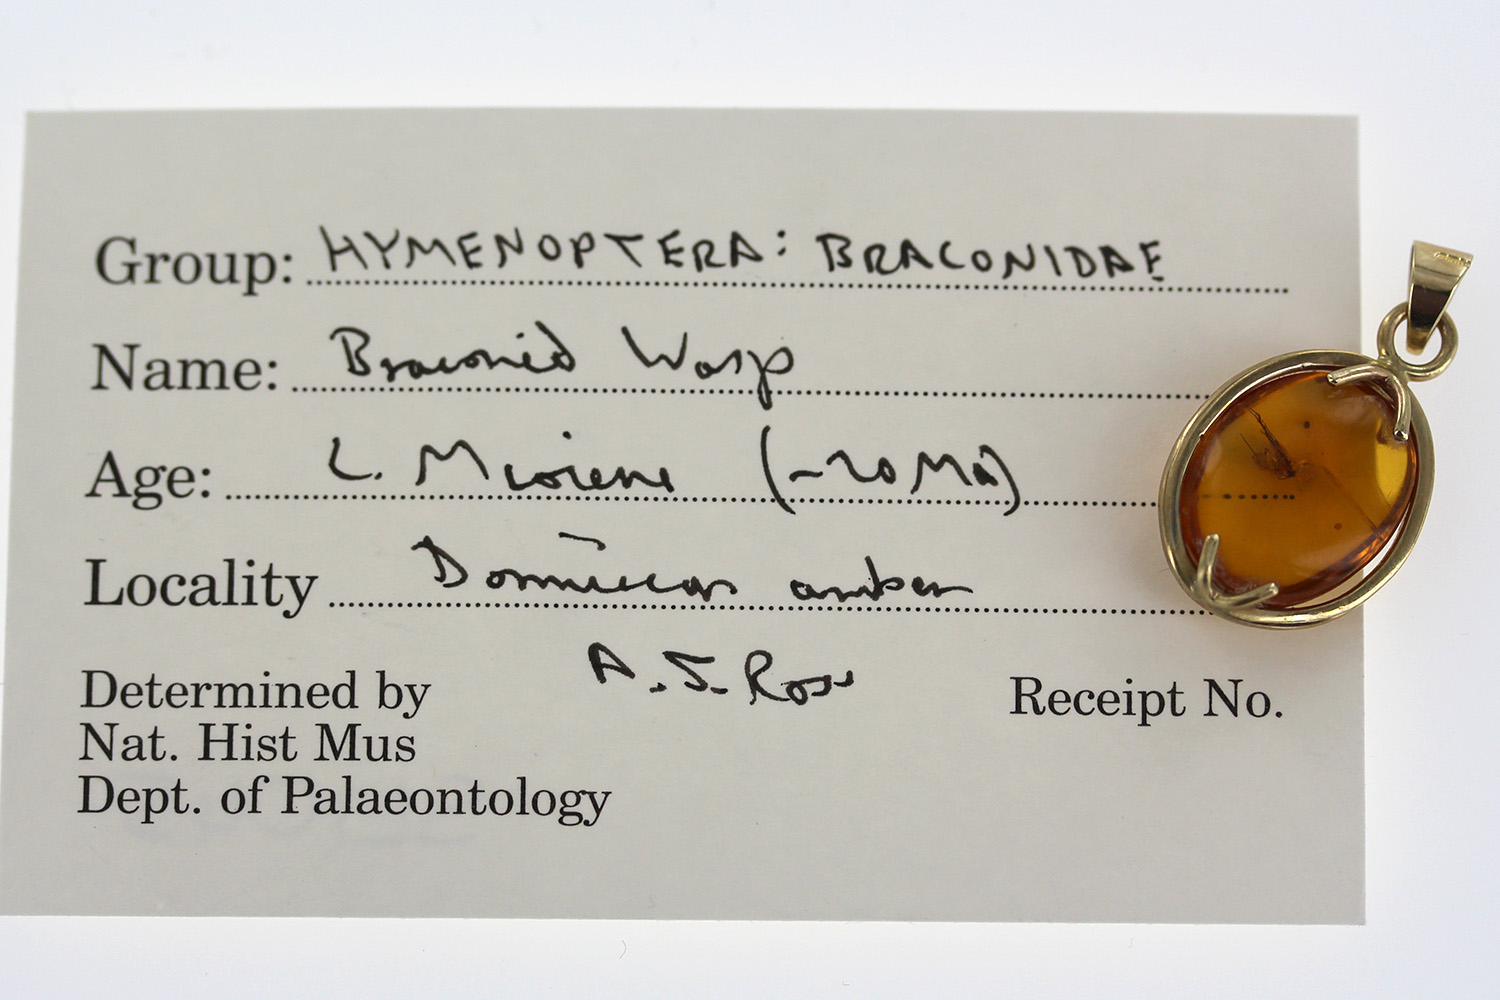 Group: HYMENOPTERA: BRACONIDAE
Name: Braconid Wasp
Age: L. Miocene (~20 Ma)
Locality Dominican amber
A. J. Ross
Determined by
Nat. Hist Mus
Dept. of Palaeontology
Receipt No.